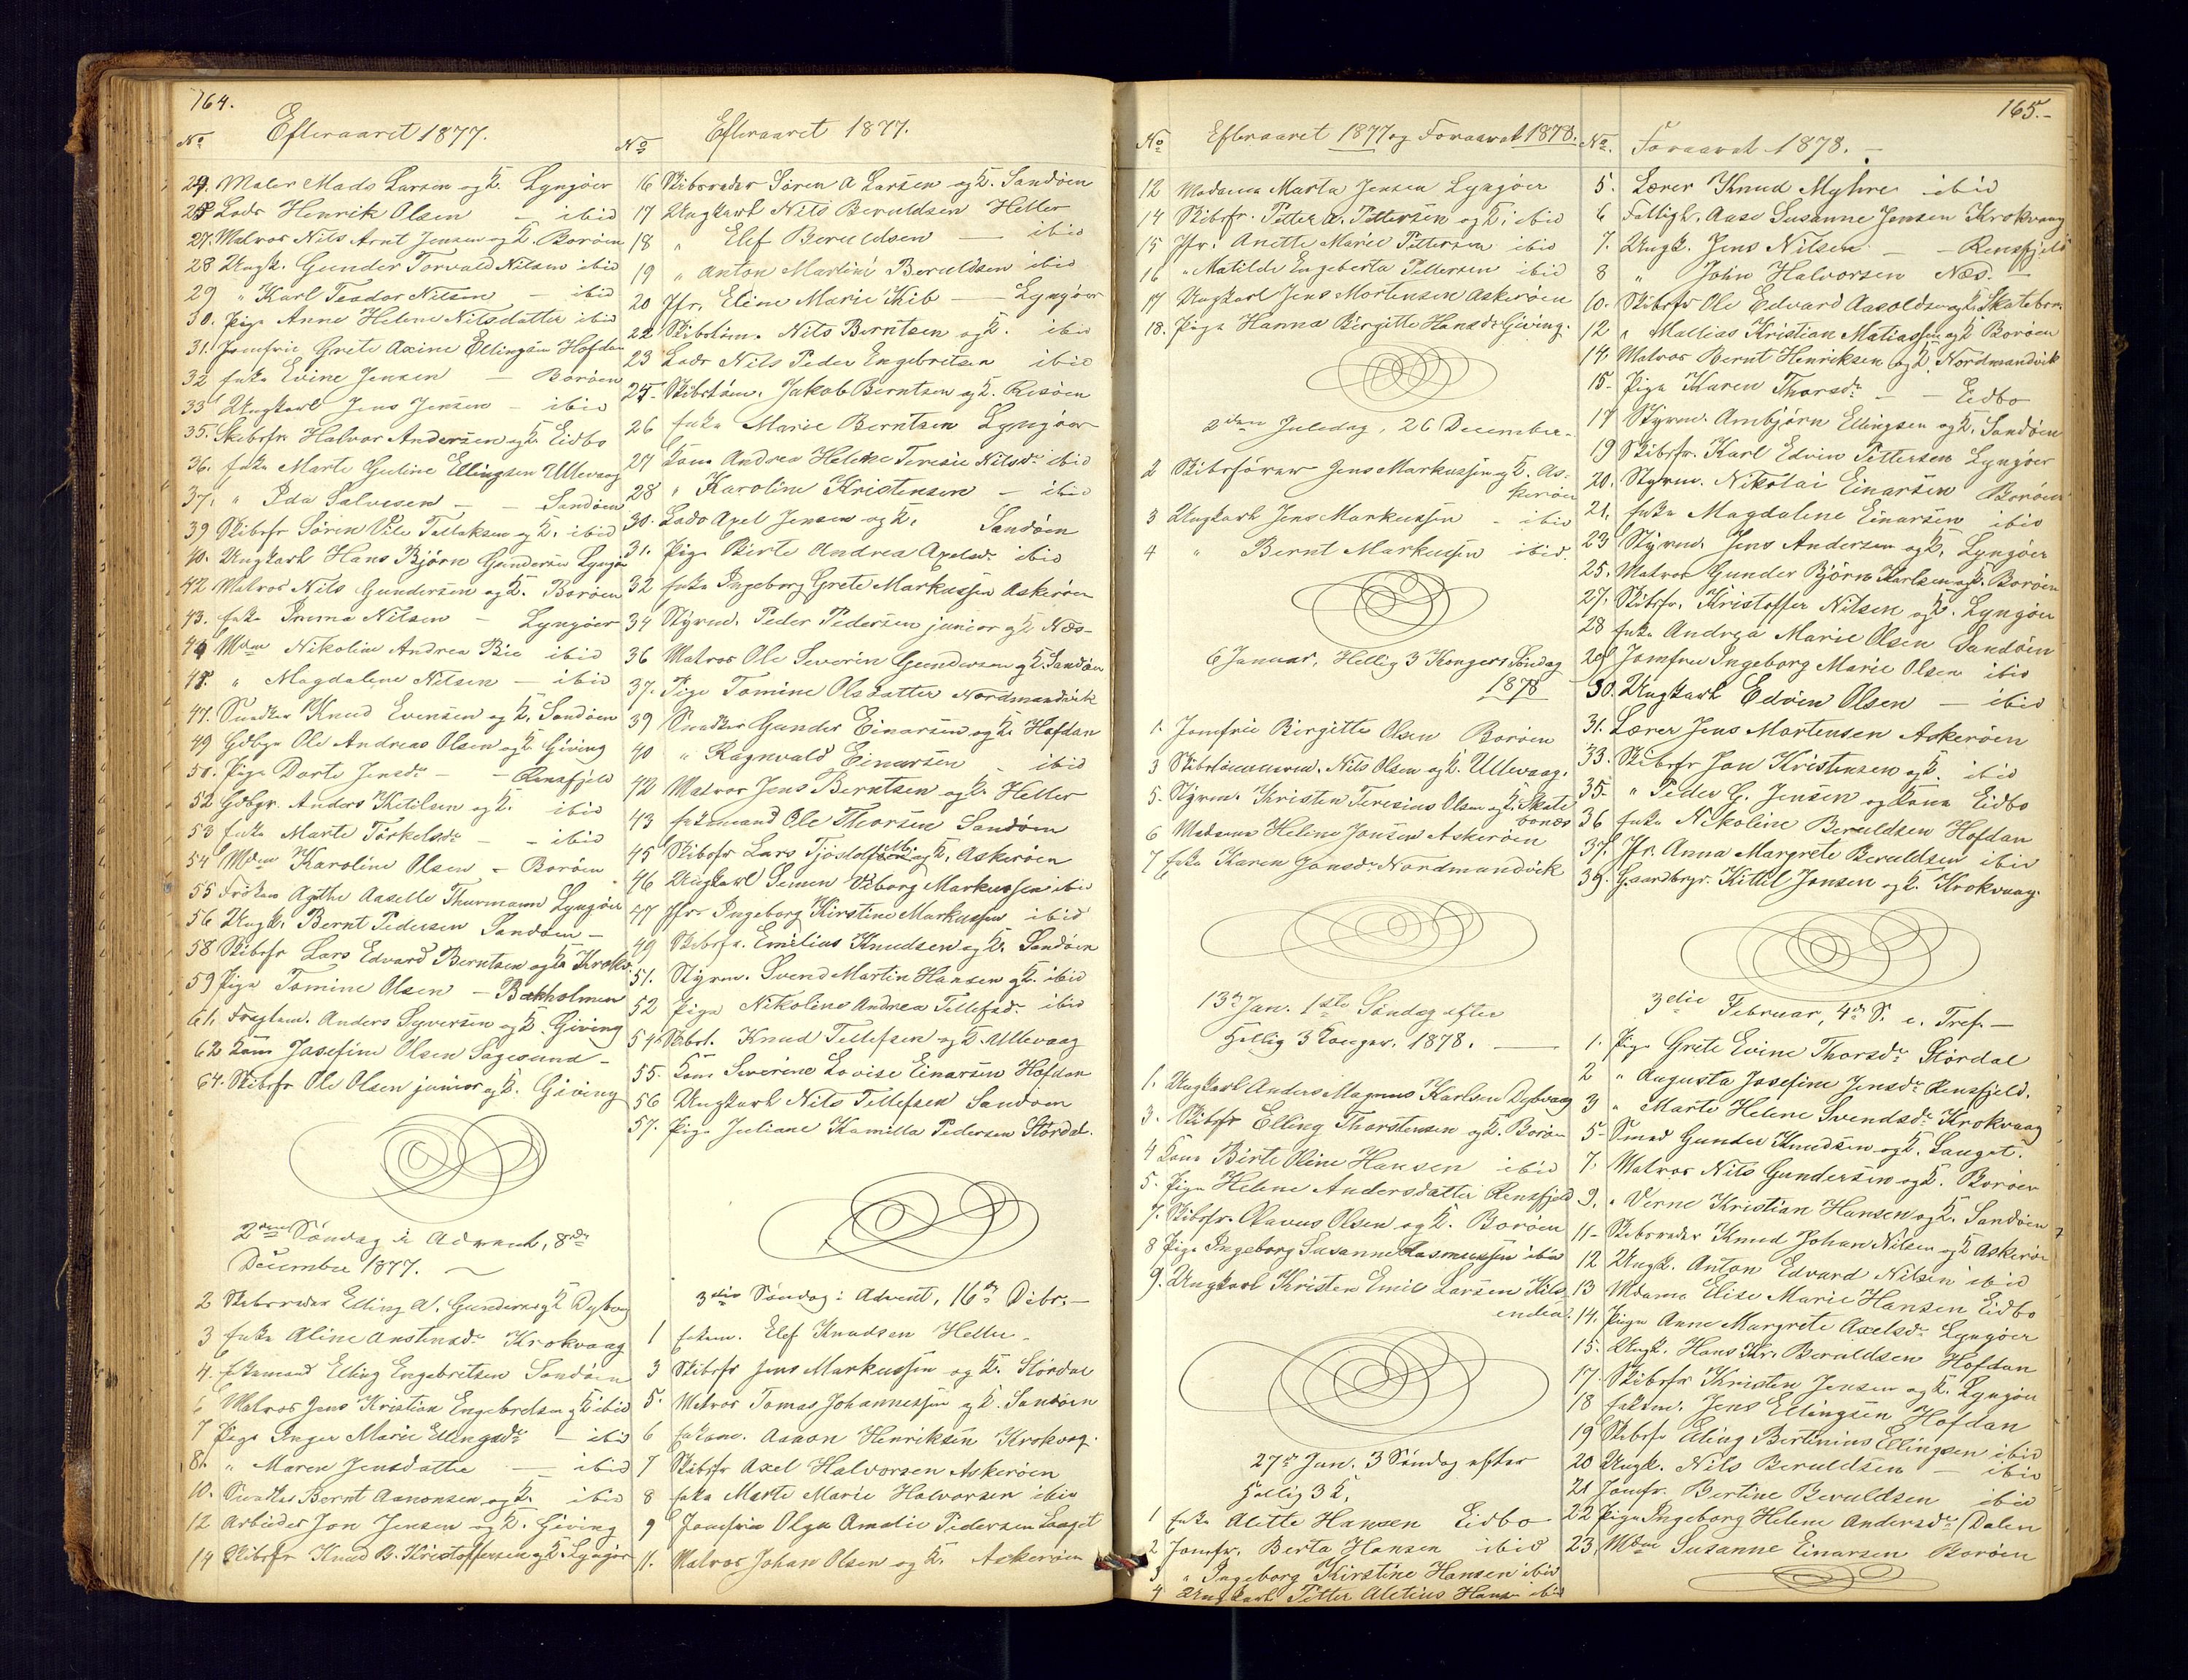 164.
Efteraaret 1877.
No
24. Maler Mads Larsen og K. Lyngöer
25 Lods Henrik Olsen — ibid
27. Matros Nils Arnt Jensen og K. Boröen
28 Ungk. Gunder Torvald Nilsen ibid
29 " Karl Teodor Nilsen — ibid
30. Pige Anne Helene Nilsdatter ibid
31. Jomfru Grete Axine Ellingsen Hofdan
32 Enke Evine Jensen — Boröen
33 Ungkarl Jens Jensen — ibid
35. Skibsfr Halvor Andersen og K. Eidbo
36. Enke Marte Guline Ellingsen Ullevaag
37. " Ida Salvesen — Sandöen
39 Skibsfr Sören Vile Tellefsen og K. ibid
40. Ungkarl Hans Björn Gundersen Lyngör
42 Matros Nils Gundersen og K. Boröen
43. Enke Emma Nilsen — Lyngöer
44 Mdm Nikoline Andrea Bie ibid
45. " Magdalene Nilsen — ibid
47. Snedker Knud Evensen og K. Sandöen
49 Gdbgr Ole Andreas Olsen og K. Giving
50. Pige Dorte Jensdr — Rensfjeld
52 Gdbgr. Anders Ketilsen og K. ibid
53 Enke Marte Törkelsdr — ibid
54 Mdm Karoline Olsen — Boröen
55 Fröken Agthe Aaselle Thurmann Lyngöer
56 Ungk. Bernt Pedersen Sandöen —
58 Skibsfr Lars Edvard Berntsen og K Krokv.
59 Pige Tomine Olsen — Bækholmen
61. Anders Syversen og K. Giving
62 Kone Josefine Olsen Sagesund —
64. Skibsfr Ole Olsen junior og K. Giving
2den Söndag i Advent, 8de
December 1877.
2 Skibsreder Elling A. Gundersen og K Dybvag
3 Enke Aline Anstensdr Krokvaag
4. Enkemand Elling Engebretsen Sandöen
6 Matros Jens Kristian Engebretsen og K ibid
7 Pige Inger Marie Ellingsdr — ibid
8. " Maren Jensdatter — ibid
10. Snedker Bernt Aanonsen og K. ibid
12 Arbeider Jon Jensen og K. Giving
14 Skibsfr Knud B. Kristoffersen og K. Lyngör
Efteraaret 1877.
No
16 Skibsreder Sören A Larsen og K. Sandöen
17 Ungkarl Nils Beruldsen Heller
18 " Elef Beruldsen — ibid
19 " Anton Martini Beruldsen ibid
20 Jfr. Eline Marie Kib — Lyngöer
22 Skibstöm. Nils Berntsen og K. ibid
23 Lods Nils Peder Engebretsen ibid
25 Skibstöm. Jakob Berntsen og K. Risöen
26 Enke Marie Berntsen Lyngöer
27 Kone Andrea Helene Teresie Nilsdr ibid
28 " Karoline Kristensen — ibid
30. Lods Axel Jensen og K. Sandöen
31. Pige Birte Andrea Axelsd. ibid
32 Enke Ingeborg Grete Markussen Askeröen
34 Styrm. Peder Pedersen junior og K Næs —
36 Matros Ole Severin Gundersen og K. Sandöen
37. Pige Tomine Olsdatter Nordmandvik
39 Snedker Gunder Einarsen og K Hofdan
40 " Ragnvald Einarsen — ibid
42 Matros Jens Berntsen og K. Heller
43 Enkemand Ole Thorsen Sandöen
45 Skibsfr Lars Tjöstolfsen og K. Askeröen
46 Ungkarl Simen Viborg Markussen ibid
47 Jfr. Ingeborg Kirstine Markussen ibid
49 Skibsfr. Emilius Knudsen og K. Sandöen
51. Styrm. Svend Martin Hansen og K. ibid
52 Pige Nikoline Andrea Tellefsd. ibid
54 Skibst. Knud Tellefsen og K Ullevaag
55. Kone Severine Lovise Einarsen Hofdan
56 Ungkarl Nils Tellefsen Sandöen
57. Pige Juliane Kamilla Pedersen Stördal.
3die Söndag i Advent, 16de Debr. —
1 Enkem. Elef Knudsen Heller —
3 Skibsfr Jens Markussen og K. Stördal
5. Matros Tomas Johannessen og K. Sandöen
6 Enkem. Aanon Henriksen Krokvag.
7 Skibsfr Axel Halvorsen Askeröen
8 Enke Marte Marie Halvorsen ibid
9 Jomfru Olga Amalie Pedersen Lauget
11. Matros Johan Olsen og K. Askeröen
165. —
Efteraaret 1877 og Foraaret 1878.
No
12 Madama Marta Jensen Lyngöer
14 Skibsfr. Petter A. Pettersen og K. ibid
15 Jfr. Anette Marie Pettersen ibid
16 " Matilde Engeberta Pettersen ibid
17 Ungkarl Jens Mortensen Askeröen
18. Pige Hanna Birgitte Hansdr Giving.
2den Juledag, 26 December —
2 Skibsförer Jens Markussen og K. As-
keröen
3 Ungkarl Jens Markussen — ibid
4 " Bernt Markussen ibid.
6 Januar, Hellig 3 Kongers Söndag
1878
1. Jomfru Birgitte Olsen Boröen
3 Skibstömmerm. Nils Olsen og K. Ullevaag.
5. Styrm. Kristen Teresius Olsen og K. Skate
bonæs
6 Madama Heline Jonsen Askeröen
7 Enke Karen Jonsdr Nordmandvik
13de Jan. 1ste Söndag efter
Hellig 3 Konger. 1878. —
1. Ungkarl Anders Magnus Karlsen Dybvaag
3. Skibsfr Elling Thorstensen og K. Boröen
4 Kone Birte Oline Hansen ibid
5. Pige Helene Andersdatter Rensfjeld
7. Skibsfr. Olavus Olsen og K. Boröen
8 Pige Ingeborg Susanne Rasmussen ibid
9. Ungkarl Kristen Emil Larsen Kils
enden.
27de Jan. 3 Söndag efter
Hellig 3 K.
1 Enke Alette Hansen Eidbo
2 Jomfr. Berta Hansen ibid
3 " Ingeborg Kirstine Hansen ibid
4 Ungkarl Petter Aletius Hansen ibid
No. Foraaret 1878. —
5. Lærer Knud Myhre ibid
6 Fattigh. Aase Susanne Jensen Krokvaag
7. Ungk. Jens Nilsen — Rensfjeld
8 " John Halvorsen Næs. —
10. Skibsfr Ole Edvard Aasoldsen og K. Skatebon.
12 " Mathias Kristian Matiassen og K Boröen
14. Matros Bernt Henriksen og K. Nordmandvik
15. Pige Karen Thorsdr — Eidbo
17 Styrm. Ambjörn Ellingsen og K. Sandöen
19 Skibsfr. Karl Edvin Pettersen Lyngöer
20. Styrm. Nikolai Einarsen Boröen
21. Enke Magdalene Einarsen ibid
23 Styrm. Jens Andersen og K. Lyngöer
25. Matros Gunder Björn Karlsen og K. Boröen
27. Skibsfr. Kristoffer Nilsen og K. Lyngöer
28 Enke Andrea Marie Olsen Sandöen
29 Jomfru Ingeborg Marie Olsen ibid
30. Ungkarl Edvin Olsen — ibid
31. Lærer Jens Mortensen Askeröen
33. Skibsfr Jon Kristensen og K. ibid
35. " Peder G. Jensen og Kone Eidbo
36 Enke Nikoline Beruldsen Hofdan
37. Jfr. Anna Margrete Beruldsen ibid
39. Gaardbrgr. Kittil Jonsen og K. Krokvaag.
3die Februar, 4de S. e. Tref. —
1. Pige Grete Evine Thorsdr Stördal
2 " Augusta Josefine Jensdr Rensfjeld.
3 " Marte Helene Svendsdr Krokvaag
5 Smed Gunder Knudsen og K. Lauget.
7. Matros Nils Gundersen og K. Boröen
9. " Verne Kristian Hansen og K. Sandöen
11 Skibsreder Knud Johan Nilsen og K Askeröe
12 Ungk. Anton Edvard Nilsen ibid
13 Mdama Elise Marie Hansen Eidbo
14. Pige Anne Margrete Axelsdr Lyngöer
15. Ungk. Hans Kr. Beruldsen Hofdan
17. Skibsfr Kristen Jensen og K. Lyngöer
18 Enkem. Jens Ellingsen Hofdan
19 Skibsfr Eling Bertinius Ellingsen ibid
20 Ungk. Nils Beruldsen — ibid
21 Jomfr. Bertine Beruldsen ibid
22 Pige Ingeborg Helene Andersdr Dalen
23. Mdm Susanne Einarsen Boröen